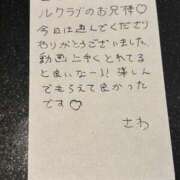 ルクラブのお兄様♡
今日は遊んでくださり
ありがとうございました。
動画上手くとれてる
と良いなー!! 楽しん
でもらえて良かった
です♡
さわ